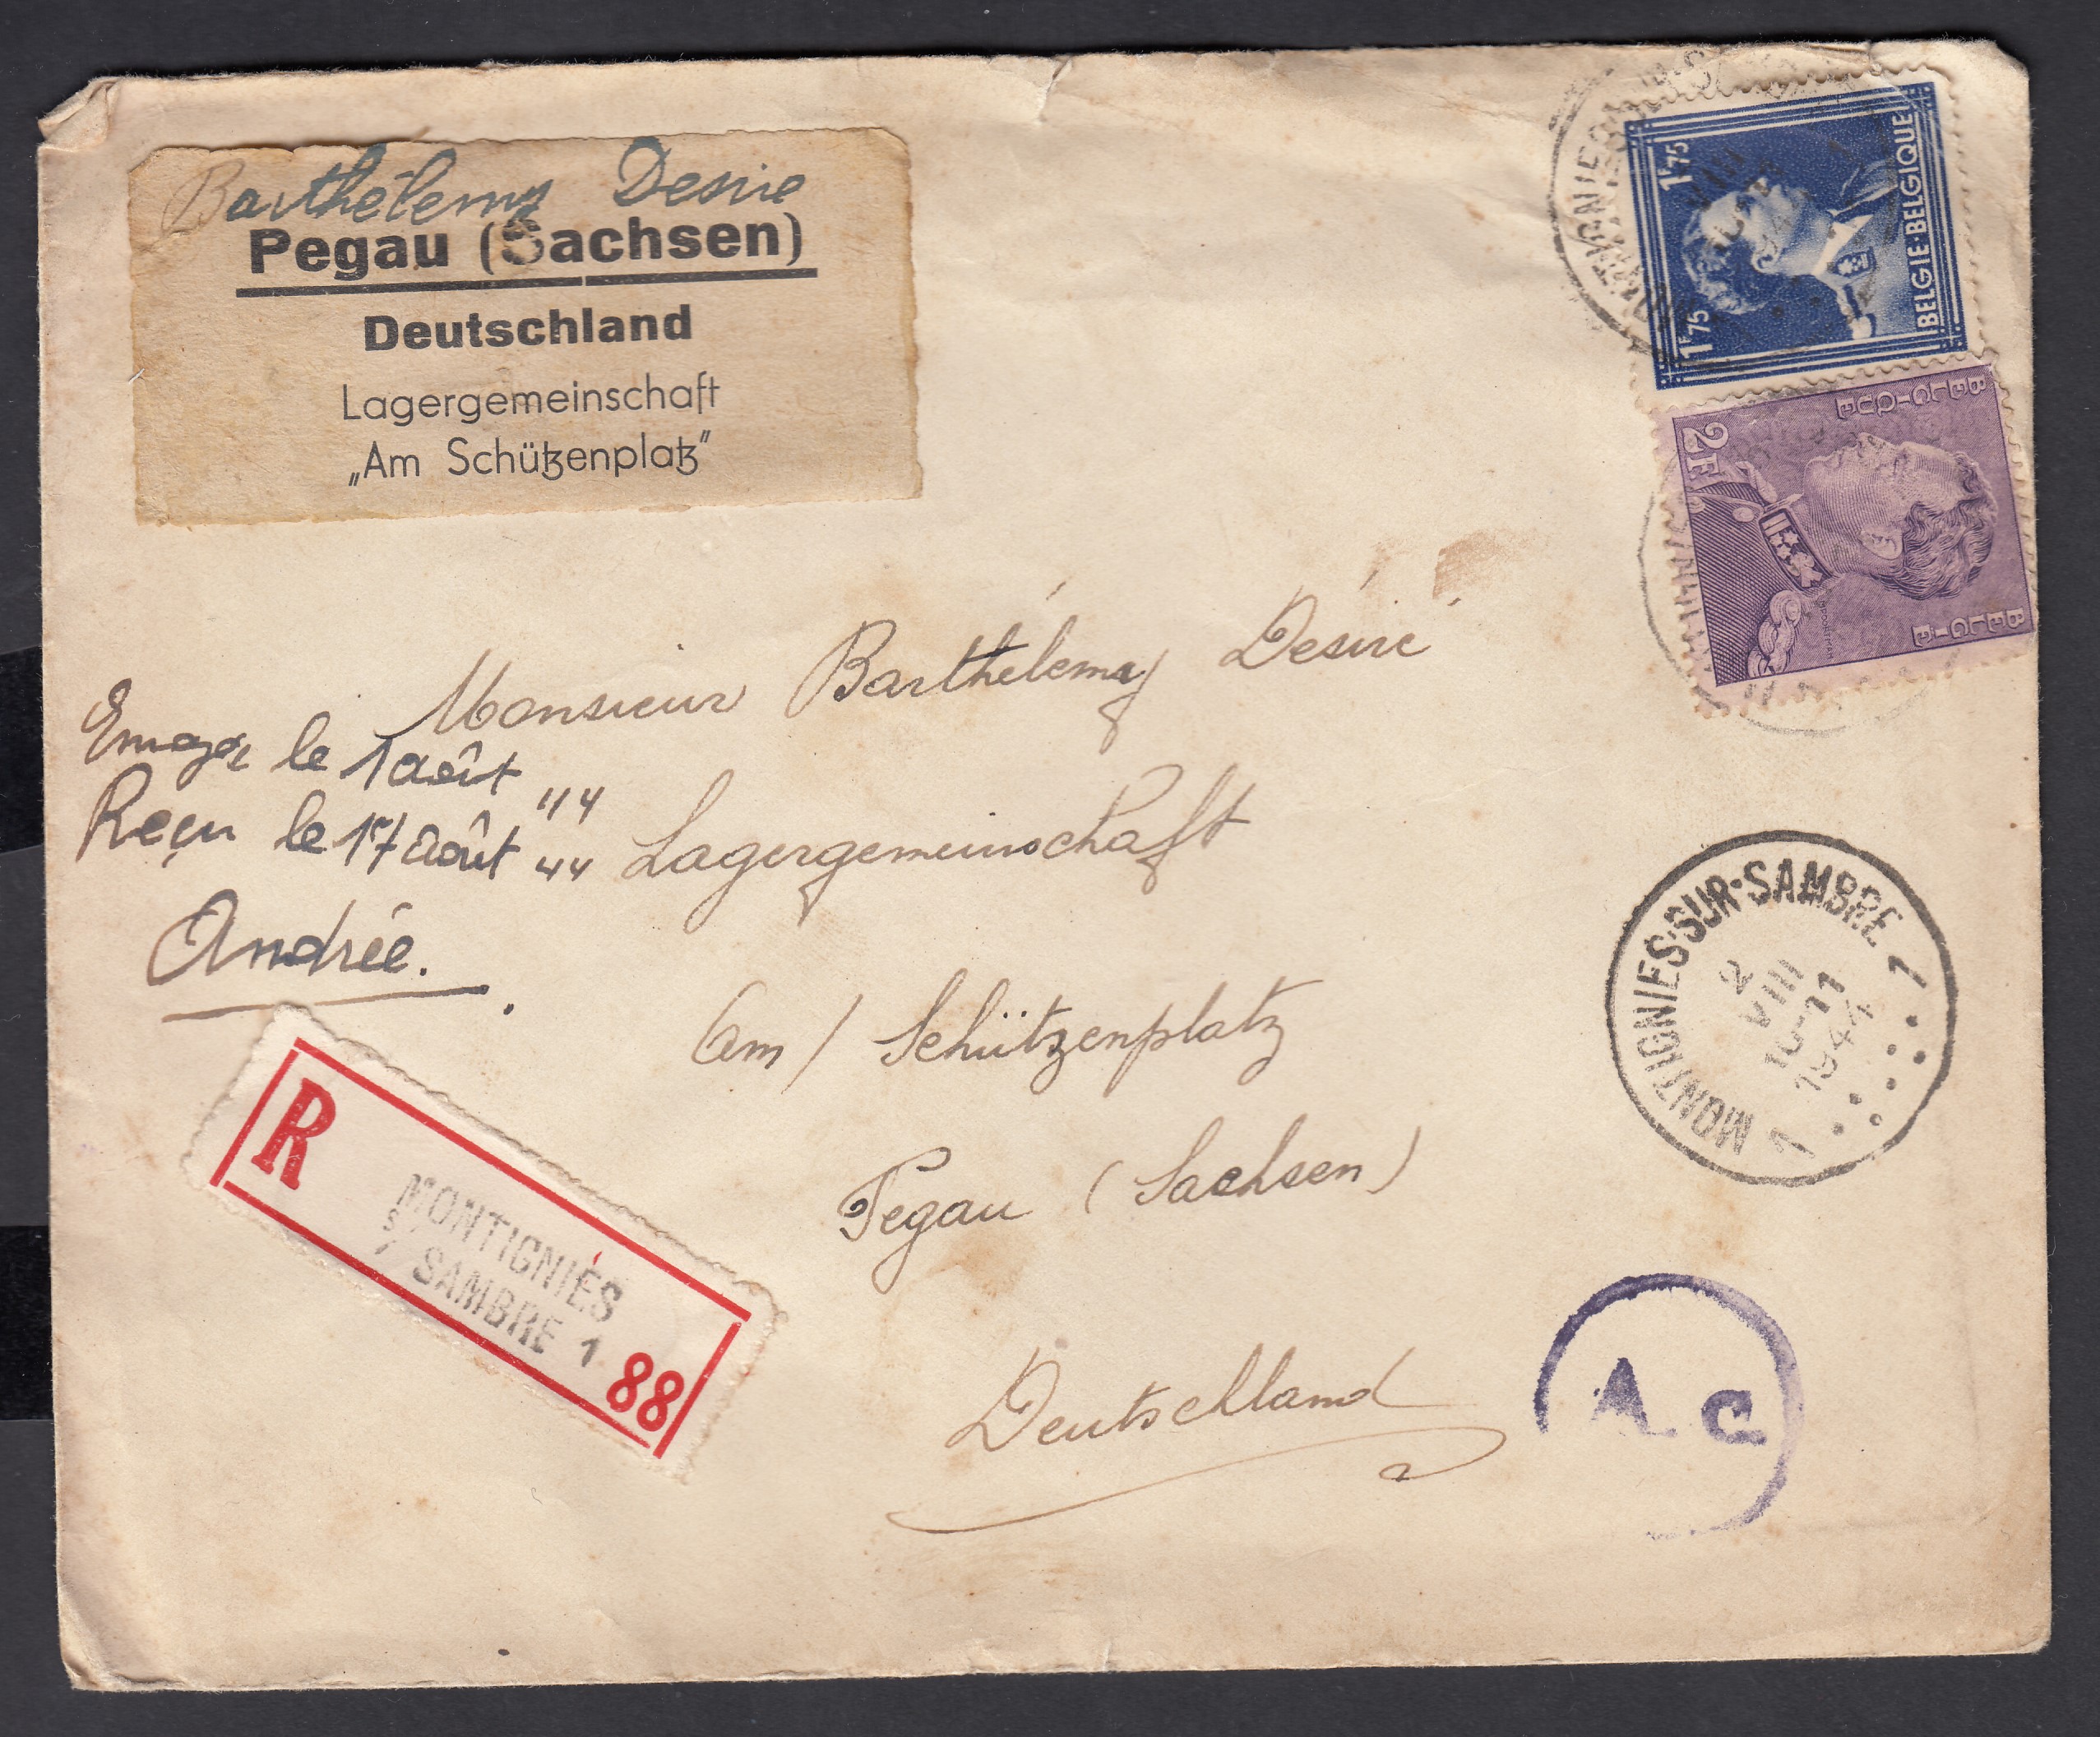 Barthélemy Desire
Pegau (Sachsen)
Deutschland
Lagergemeinschaft
„Am Schützenplatz“
1F75
1F75
BELGIE-BELGIQUE
BELGIQUE
2F
BELGIE
Monsieur Barthélemy Désiré
le 1 août 44
Reçu le 17 août 44
Andrée.
Lagergemeinschaft
Am / Schützenplatz
Pegau (Sachsen)
Deutschland
MONTIGNIES-SUR-SAMBRE
1 1
2
VIII
10-11
1944
R
MONTIGNIES
S/ SAMBRE 1
88
A.c.